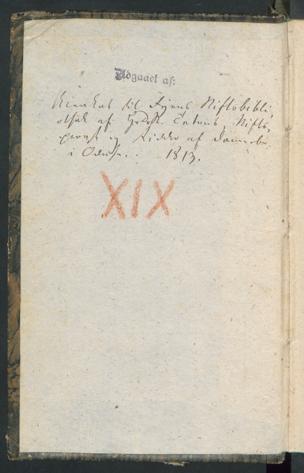 Udgaaet af:
Skienket til Fyens Stiftsbibli-
othek af Stifts-
provst og Ridder af Dannebr.
i Odense. 1813.
XIX